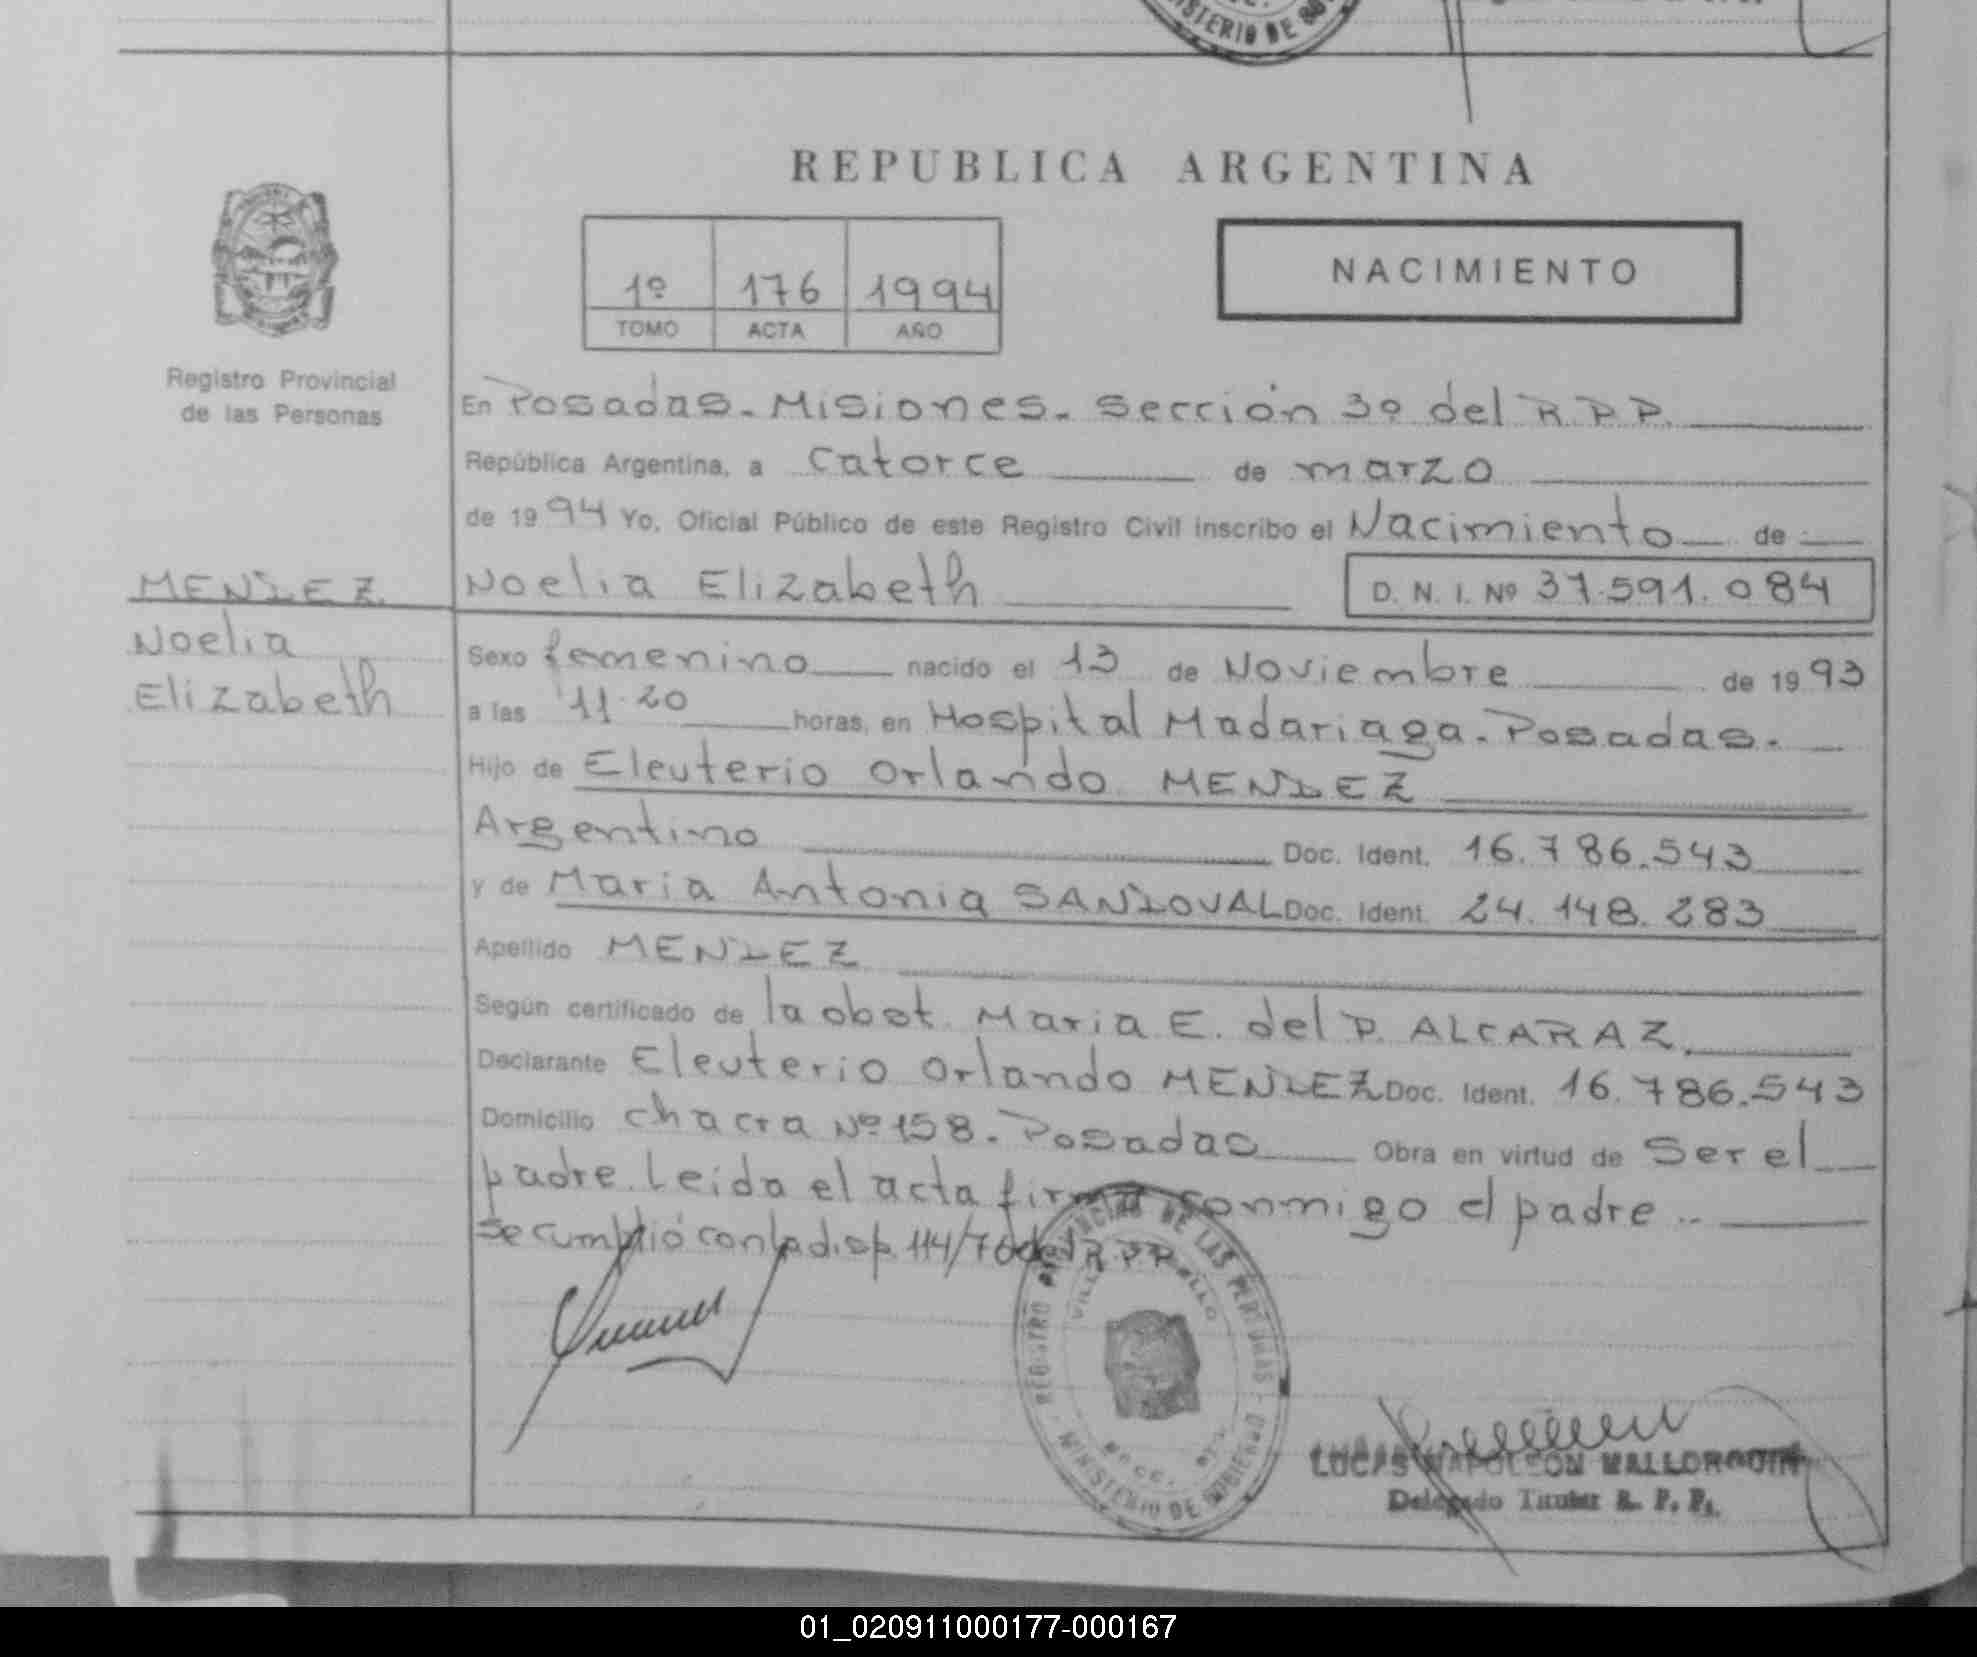 MINISTERIO DE GO
REPUBLICA ARGENTINA
1º 176 1994
TOMO ACTA AÑO
NACIMIENTO
Registro Provincial
de las Personas
En Posadas. Misiones. Sección 3º del R.P.P.
República Argentina, a catorce de marzo
de 1994 Yo, Oficial Público de este Registro Civil inscribo el Nacimiento de
Noelia Elizabeth D. N. I. Nº 37.591.084
MENDEZ
Noelia
Elizabeth
Sexo femenino nacido el 13 de Noviembre de 1993
a las 11.20 horas, en Hospital Madariaga. Posadas.
Hijo de Eleuterio Orlando MENDEZ
Argentino Doc. Ident. 16.786.543
y de Maria Antonia SANDOVAL Doc. Ident. 24.148.283
Apellido MENDEZ
Según certificado de la obst. Maria E. del P. ALCARAZ.
Declarante Eleuterio Orlando MENDEZ Doc. Ident. 16.786.543
Domicilio chacra Nº 158. Posadas Obra en virtud de Ser el
padre. Leida el acta firma conmigo el padre..
Se cumplió con la disp. 114/76 del R.P.P.
REGISTRO PROVINCIAL DE LAS PERSONAS
MINISTERIO DE GOBIERNO
LUCAS NAPOLEON MALLORQUIN
Delegado Titular R. P. P.
01_020911000177-000167